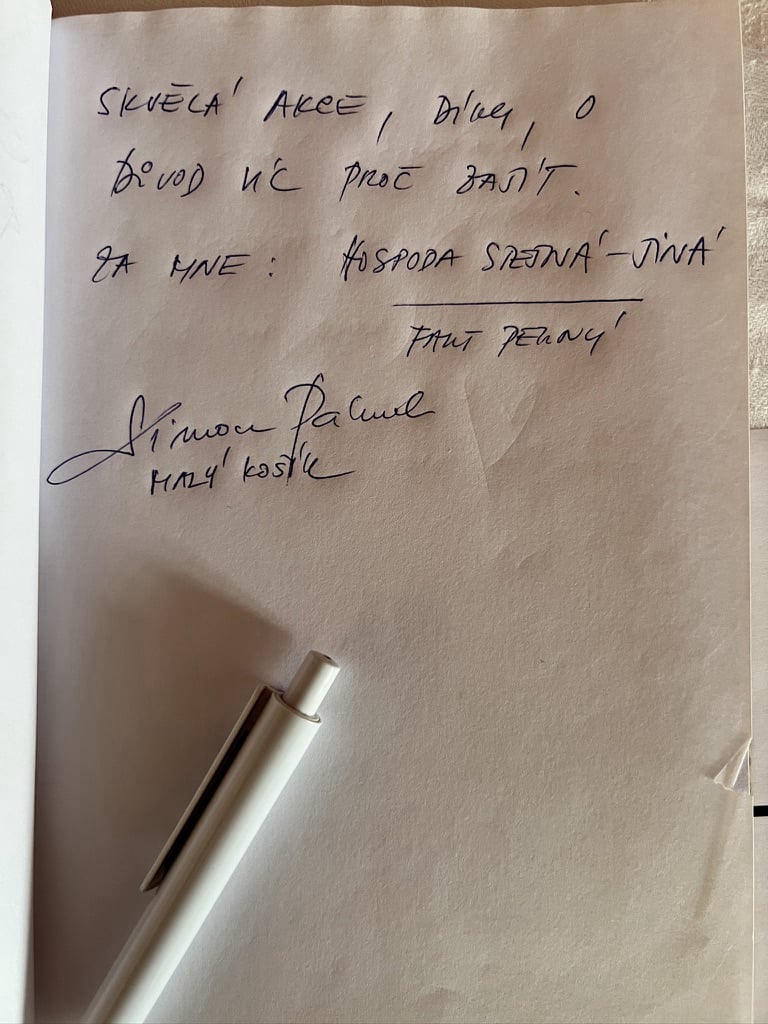 SKVĚLÁ AKCE, DÍKY, O
DŮVOD VÍC PROČ ZAJÍT.
ZA MNE: HOSPODA STEJNÁ-JINÁ
FAKT PĚKNÝ
Šimon
MALÝ KOŠÍK